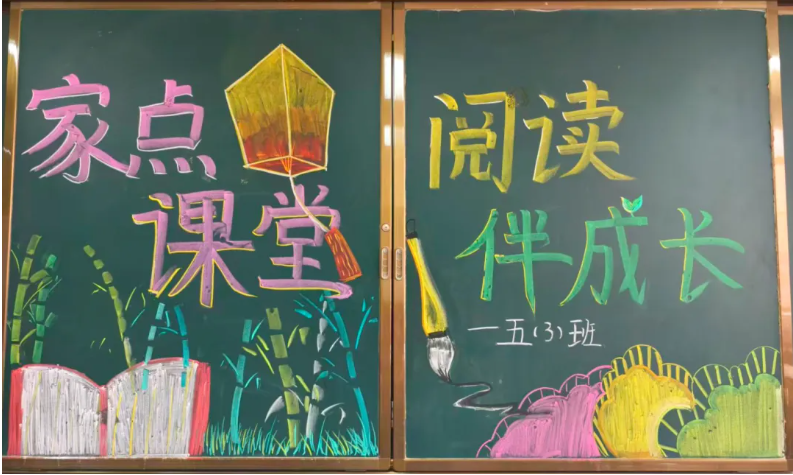 家点
课堂
阅读
伴成长
一五(3)班